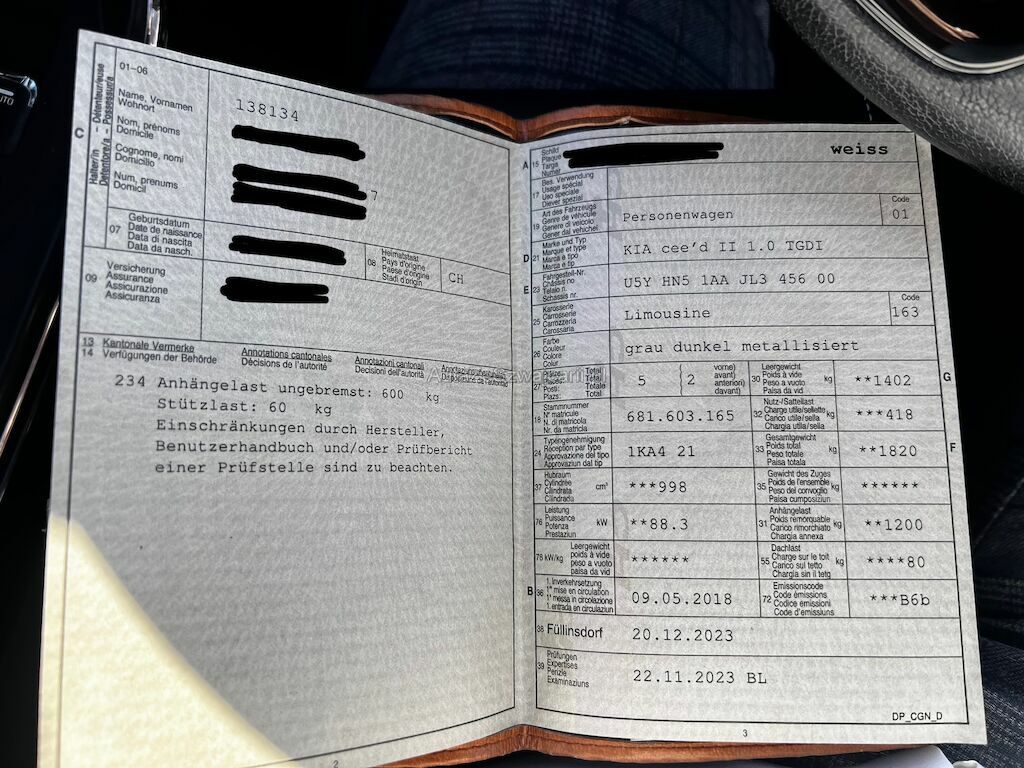 01–06
C
Halter/in – Détenteur/euse
Detentore/a – Possessur/a
Name, Vornamen
Wohnort
Nom, prénoms
Domicile
Cognome, nomi
Domicilio
Num, prenums
Domicil
138134
7
07
Geburtsdatum
Date de naissance
Data di nascita
Data da nasch.
08
Heimatstaat
Pays d'origine
Paese d'origine
Stadi d'origin
CH
09
Versicherung
Assurance
Assicurazione
Assicuranza
13 Kantonale Vermerke
14 Verfügungen der Behörde
Annotations cantonales
Décisions de l'autorité
Annotazioni cantonali
Decisioni dell'autorità
234 Anhängelast ungebremst: 600 kg
Stützlast: 60 kg
Einschränkungen durch Hersteller,
Benutzerhandbuch und/oder Prüfbericht
einer Prüfstelle sind zu beachten.
2
A
15
Schild
Plaque
Targa
Numer
weiss
17
Bes. Verwendung
Usage spécial
Uso speciale
Diever spezial
19
Art des Fahrzeugs
Genre de véhicule
Genere di veicolo
Gener dal vehichel
Personenwagen
Code
01
D
21
Marke und Typ
Marque et type
Marca e tipo
Marca e tip
KIA cee'd II 1.0 TGDI
E
23
Fahrgestell-Nr.
Châssis no
Telaio n.
Schassis nr.
U5Y HN5 1AA JL3 456 00
25
Karosserie
Carrosserie
Carrozzeria
Carossaria
Limousine
Code
163
26
Farbe
Couleur
Colore
Colur
grau dunkel metallisiert
27
Plätze
Places:
Posti:
Plazs:
Total
Total
Totale
Total
5
2
vorne)
avant)
anteriori)
davant)
30
Leergewicht
Poids à vide
Peso a vuoto
Paisa a vid
kg
**1402
G
18
Stammnummer
Nº matricule
N. di matricola
Nr. da matricla
681.603.165
32
Nutz-/Sattellast
Charge utile/sellette
Carico utile/sella
Chargia utila/sella
kg
***418
24
Typengenehmigung
Réception par type
Approvazione del tipo
Approvaziun dal tip
1KA4 21
33
Gesamtgewicht
Poids total
Peso totale
Paisa totala
kg
**1820
F
37
Hubraum
Cylindrée
Cilindrata
Cilindrada
cm³
***998
35
Gewicht des Zuges
Poids de l'ensemble
Peso del convoglio
Paisa cumposiziun
kg
******
76
Leistung
Puissance
Potenza
Prestaziun
kW
**88.3
31
Anhängelast
Poids remorquable
Carico rimorchiato
Chargia annexa
kg
**1200
78 kW/kg
Leergewicht
poids à vide
peso a vuoto
paisa da vid
******
55
Dachlast
Charge sur le toit
Carico sul tetto
Chargia sin il tetg
kg
****80
B
36
1. Inverkehrsetzung
1re mise en circulation
1a messa in circolazione
1. entrada en circulaziun
09.05.2018
72
Emissionscode
Code émissions
Codice emissioni
Code d'emissiuns
***B6b
38
Füllinsdorf
20.12.2023
39
Prüfungen
Expertises
Perizie
Examinaziuns
22.11.2023 BL
DP_CGN_D
3